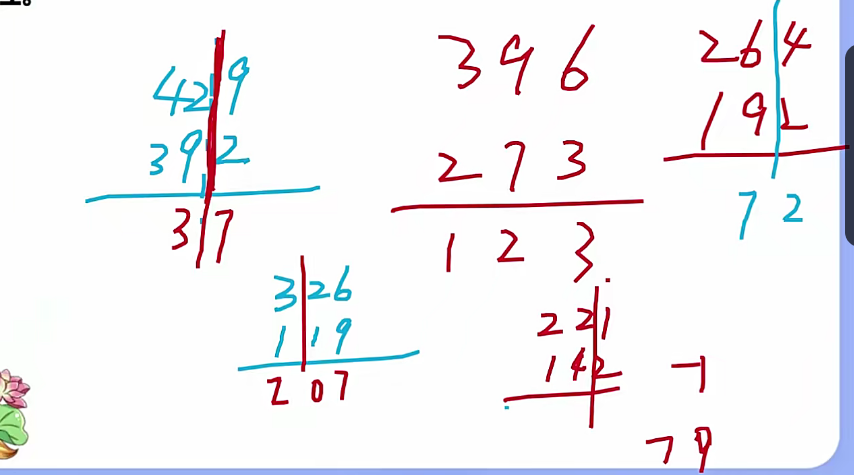 429
392
37
396
273
123
264
192
72
326
119
207
221
142
-1
79